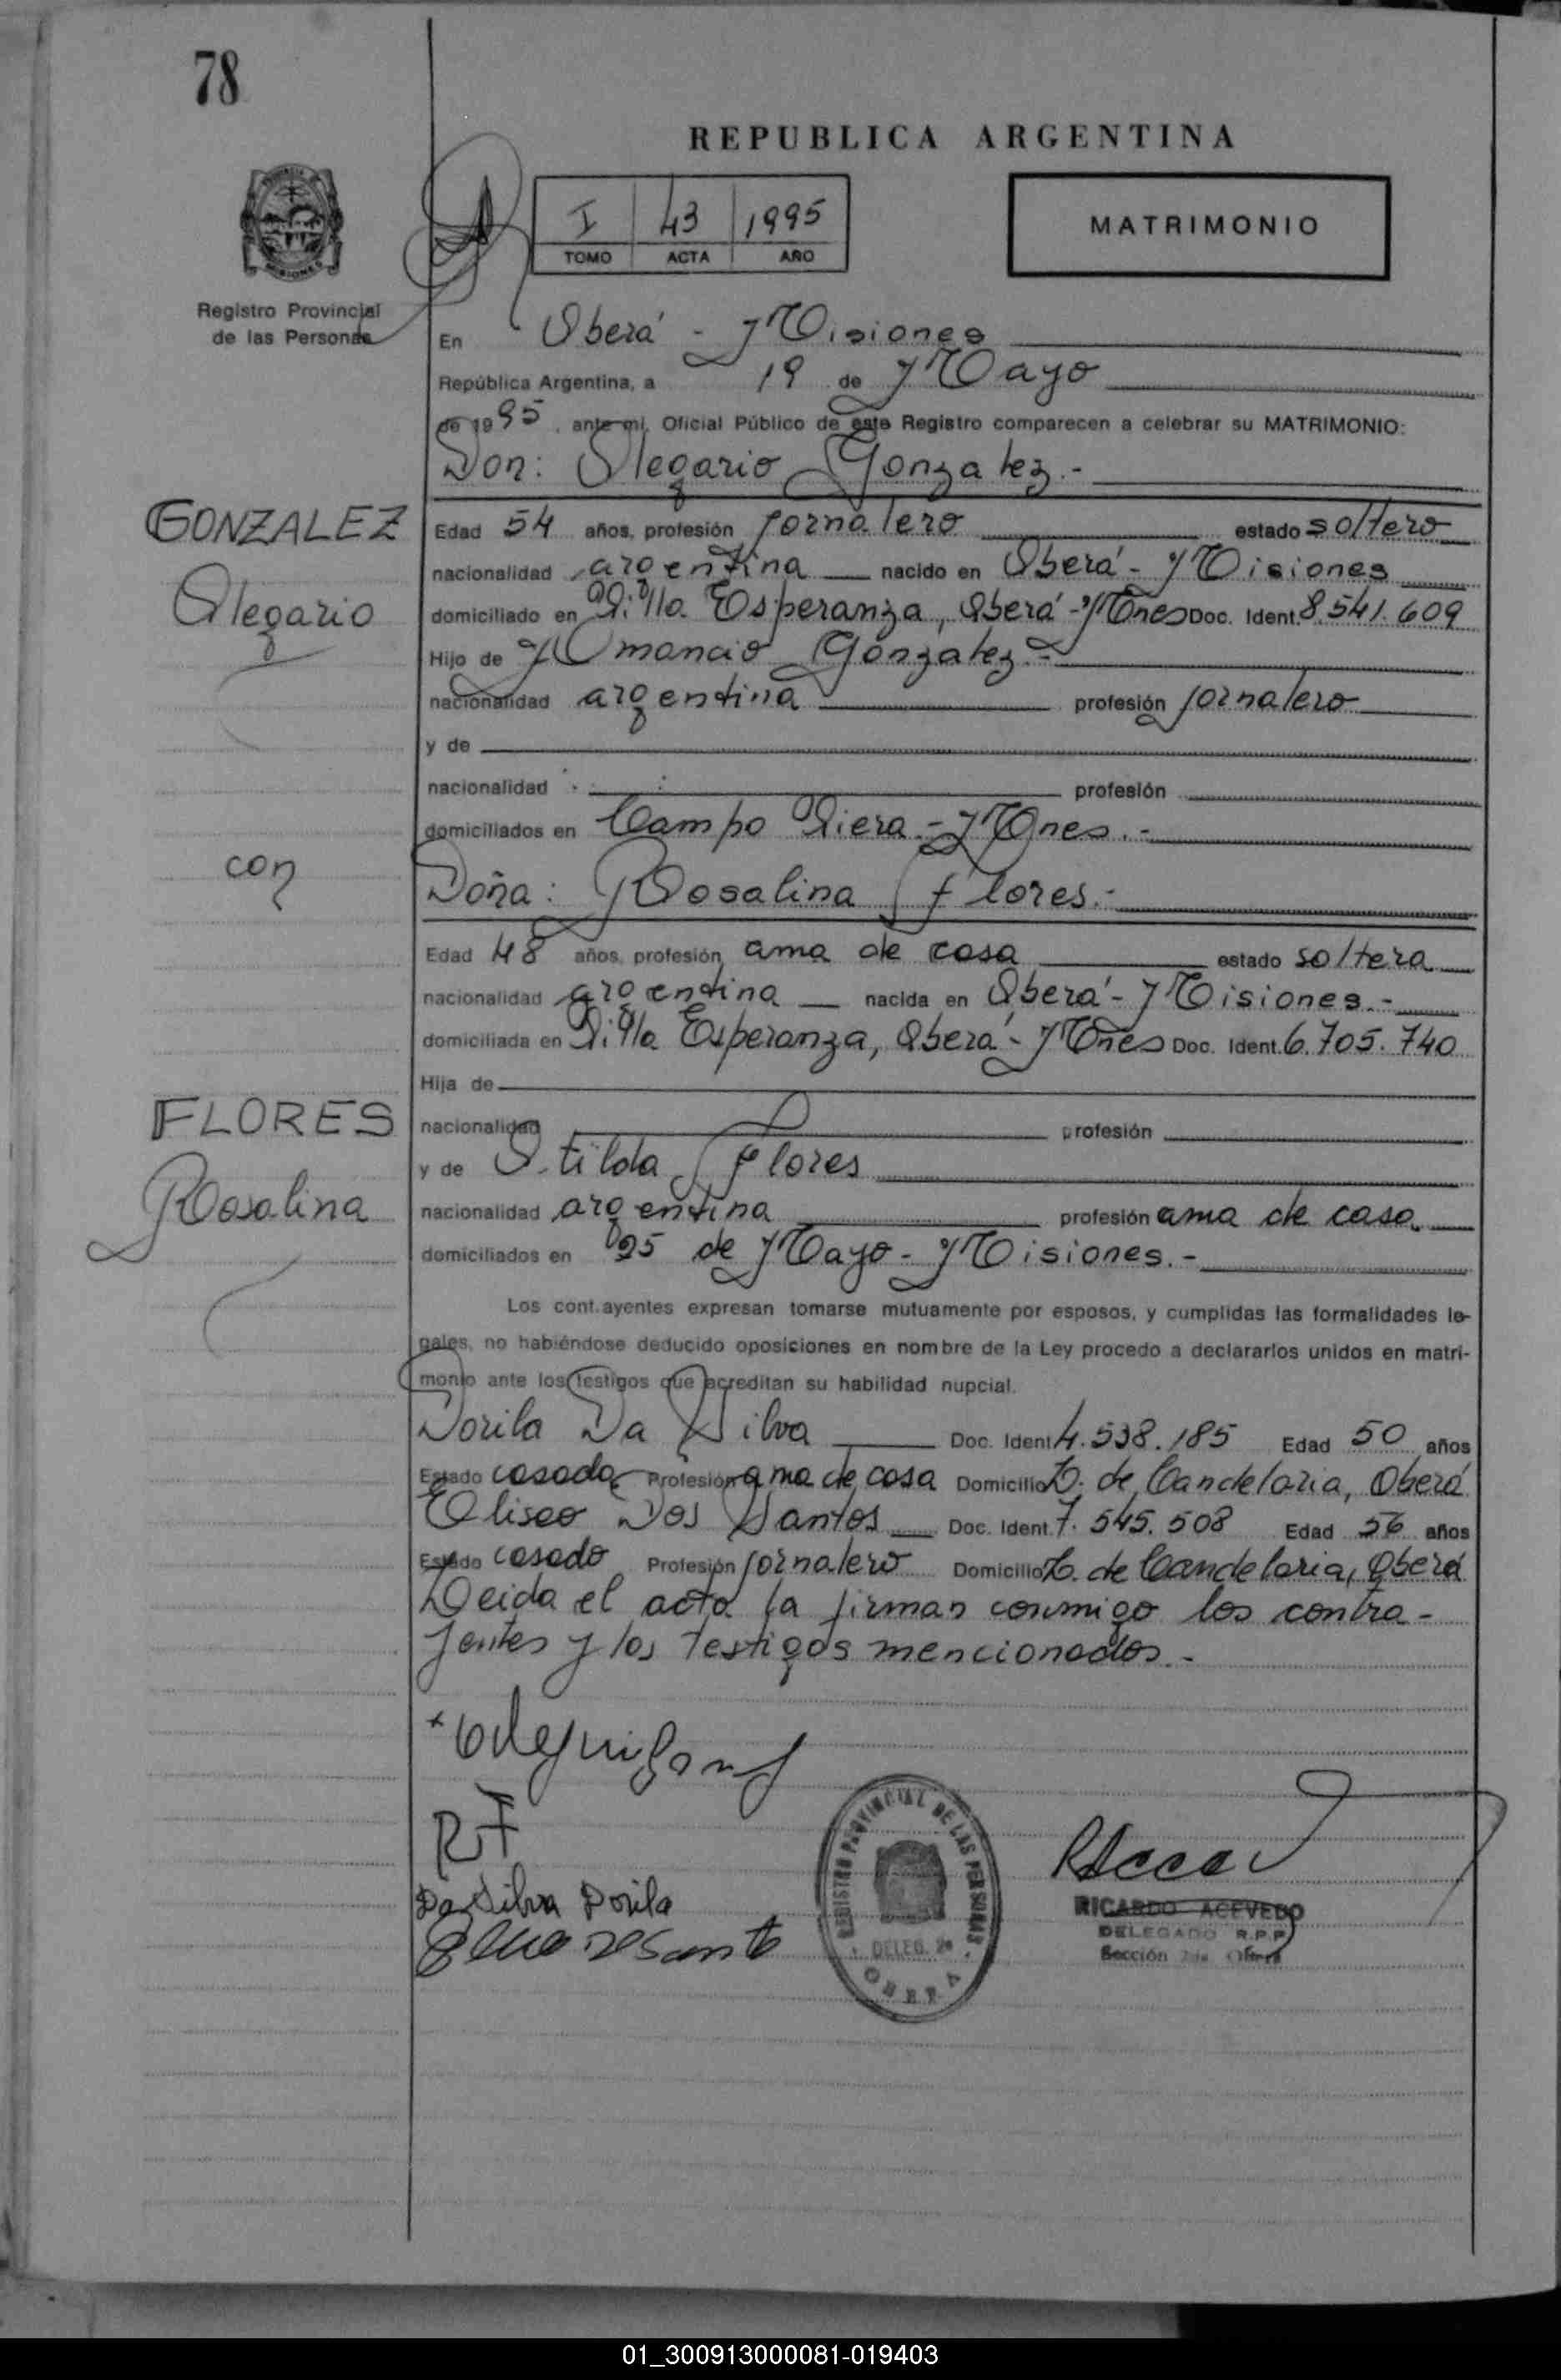 78
REPUBLICA ARGENTINA
I 43 1995
TOMO ACTA AÑO
MATRIMONIO
Registro Provincial
de las Personas
En Oberá - Misiones
República Argentina, a 19 de Mayo
de 1995, ante mi, Oficial Público de este Registro comparecen a celebrar su MATRIMONIO:
Don: Olegario Gonzalez.-
GONZALEZ
Olegario
Edad 54 años, profesión jornalero estado soltero
nacionalidad argentina nacido en Oberá - Misiones
domiciliado en Villa Esperanza, Oberá - Mnes Doc. Ident. 8.541.609
Hijo de Amancio Gonzalez.-
nacionalidad argentina profesión jornalero
y de
nacionalidad profesión
domiciliados en Campo Viera - Mnes.-
con
Doña: Rosalina Flores.-
Edad 48 años, profesión ama de casa estado soltera
nacionalidad argentina nacida en Oberá - Misiones.-
domiciliada en Villa Esperanza, Oberá - Mnes Doc. Ident. 6.705.740
Hija de
FLORES
Rosalina
nacionalidad profesión
y de Otilda Flores
nacionalidad argentina profesión ama de casa
domiciliados en 25 de Mayo - Misiones.-
Los cont.ayentes expresan tomarse mutuamente por esposos, y cumplidas las formalidades le-
gales, no habiéndose deducido oposiciones en nombre de la Ley procedo a declararlos unidos en matri-
monio ante los testigos que acreditan su habilidad nupcial.
Dorila Da Silva Doc. Ident 4.538.185 Edad 50 años
Estado casada Profesión ama de casa Domicilio L. de Candelaria, Oberá
Eliseo Dos Santos Doc. Ident. 7.545.508 Edad 56 años
Estado casado Profesión jornalero Domicilio L. de Candelaria, Oberá
Leida el acta la firman conmigo los contra-
yentes y los testigos mencionados.-
RF
Da Silva Dorila
REGISTRO PROVINCIAL DE LAS PERSONAS
DELEG. 2a
OBERA
RICARDO ACEVEDO
DELEGADO R.P.P
Sección 2da Oberá
01_300913000081-019403